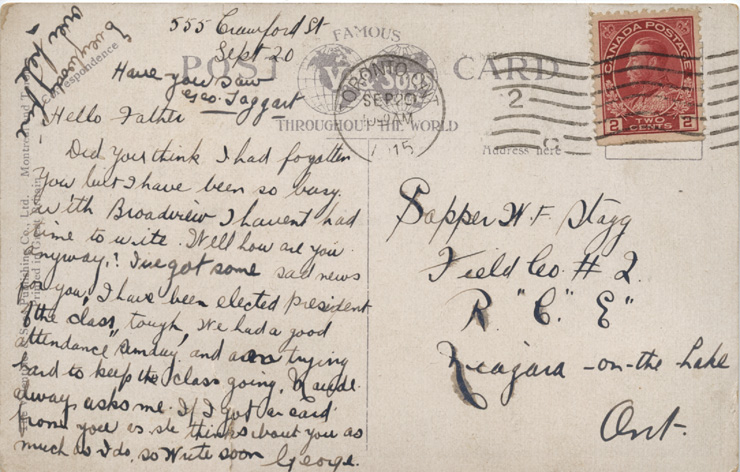 555 Crawford St
Sept 20
Have you saw
Geo. Taggart
Hello Father
Did you think I had forgotten
you but I have been so busy
with Broadview I havent had
time to write. Well how are you
anyway! I've got some sad news
for you, I have been elected president
of the class, tough, We had a good
attendance Sunday, and am trying
hard to keep the class going, Maude
always asks me if I got a card
from you as she thinks about you as
much as I do, so Write soon George.
Everybody
over here
FAMOUS
POST CARD
THROUGHOUT THE WORLD
Correspondence
Address here
Publishing Co., Ltd., Montreal and
Printed in Great Britain
TORONTO, ONT
SEP 20
AM
1915
2
CANADA POSTAGE
2 TWO CENTS 2
Sapper W. F. Stagg
Field Co. # 2.
R. "C." E"
Niagara-on-the Lake
Ont.